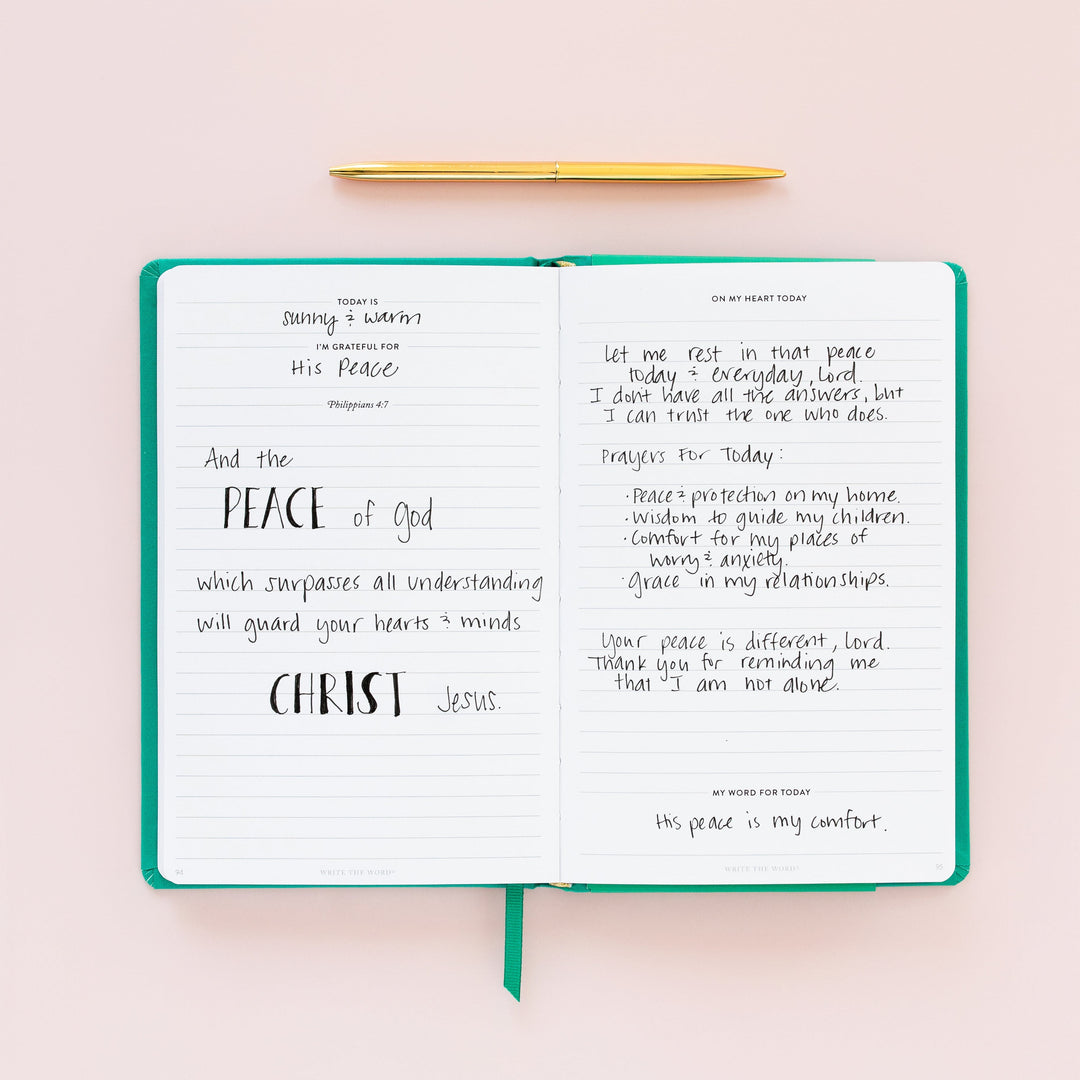 TODAY IS
sunny & warm
I'M GRATEFUL FOR
His Peace
Philippians 4:7
And the
PEACE of God
which surpasses all understanding
will guard your hearts & minds
CHRIST Jesus.
94
WRITE THE WORD®
ON MY HEART TODAY
Let me rest in that peace
today & everyday, Lord.
I don't have all the answers, but
I can trust the one who does.
Prayers For Today:
· Peace & protection on my home.
· Wisdom to guide my children.
· Comfort for my places of
worry & anxiety.
· Grace in my relationships.
Your peace is different, Lord.
Thank you for reminding me
that I am not alone.
MY WORD FOR TODAY
His peace is my comfort.
WRITE THE WORD®
95